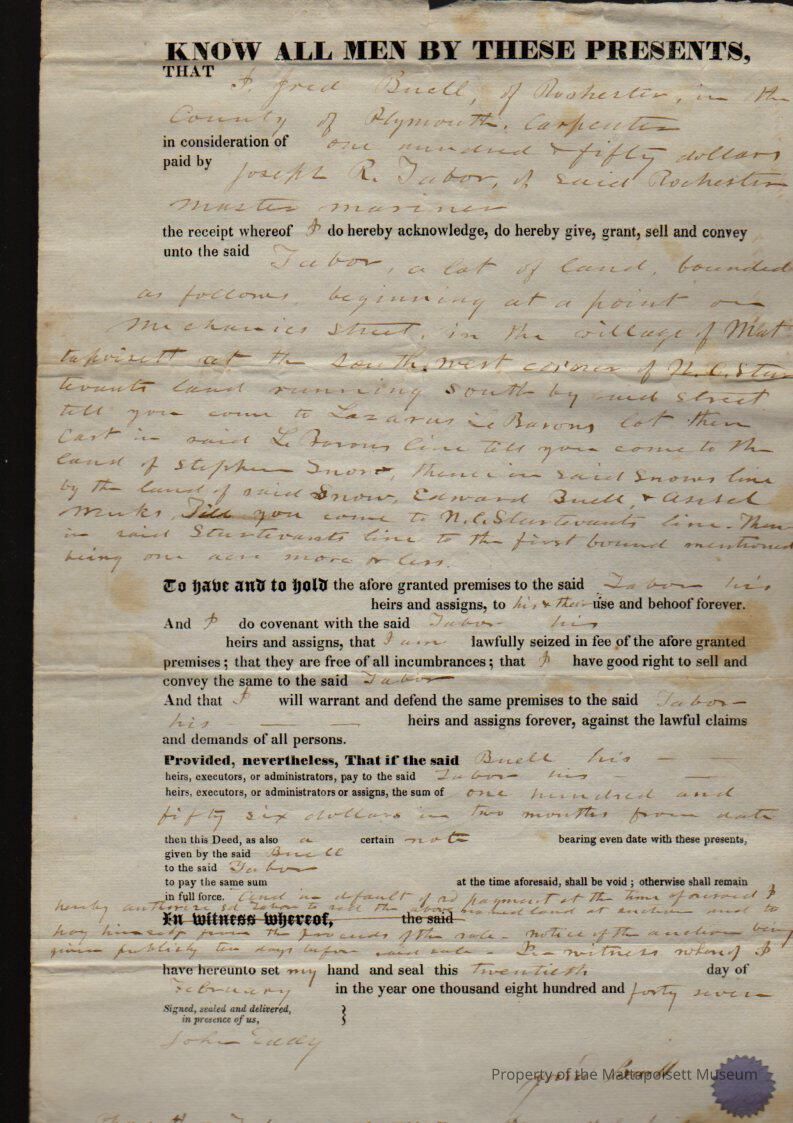 KNOW ALL MEN BY THESE PRESENTS,
THAT
I, Jred Buell, of Rochester, in the
County of Plymouth, Carpenter
in consideration of one hundred & fifty dollars
paid by Joseph R. Tabor, of said Rochester
master mariner
the receipt whereof I do hereby acknowledge, do hereby give, grant, sell and convey
unto the said Tabor, a lot of land, bounded
as follows, beginning at a point on
Mechanics Street, in the village of Mat
tapoisett at the South West corner of N. C. Stur
tevants land running South by said Street
till you come to Lazarus LeBarons lot then
East in said LeBarons line till you come to the
land of Stephen Snow, thence in said Snows line
by the land of said Snow, Edward Buell, & Ansel
Meeks, till you come to N. C. Sturtevants line. Then
in said Sturtevants line to the first bound mentioned
being one acre more or less.
To have and to hold the afore granted premises to the said Tabor his
heirs and assigns, to his & their use and behoof forever.
And I do covenant with the said Tabor his
heirs and assigns, that I am lawfully seized in fee of the afore granted
premises; that they are free of all incumbrances; that I have good right to sell and
convey the same to the said Tabor
And that I will warrant and defend the same premises to the said Tabor
his heirs and assigns forever, against the lawful claims
and demands of all persons.
Provided, nevertheless, That if the said Buell his
heirs, executors, or administrators, pay to the said Tabor his
heirs, executors, or administrators or assigns, the sum of one hundred and
fifty six dollars in two months from date
then this Deed, as also a certain note bearing even date with these presents,
given by the said Buell
to the said Tabor
to pay the same sum at the time aforesaid, shall be void; otherwise shall remain
in full force. And in default of sd payment at the time aforesaid I
hereby authorize sd Tabor to sell the above named land at auction and to
In witness whereof, the said
pay himself from the proceeds of the sale - notice of the auction being
given publicly ten days before said sale - In witness whereof I
have hereunto set my hand and seal this twentieth day of
February in the year one thousand eight hundred and forty seven
Signed, sealed and delivered,
in presence of us,
John Eddy
Buell
Property of the Mattapoisett Museum